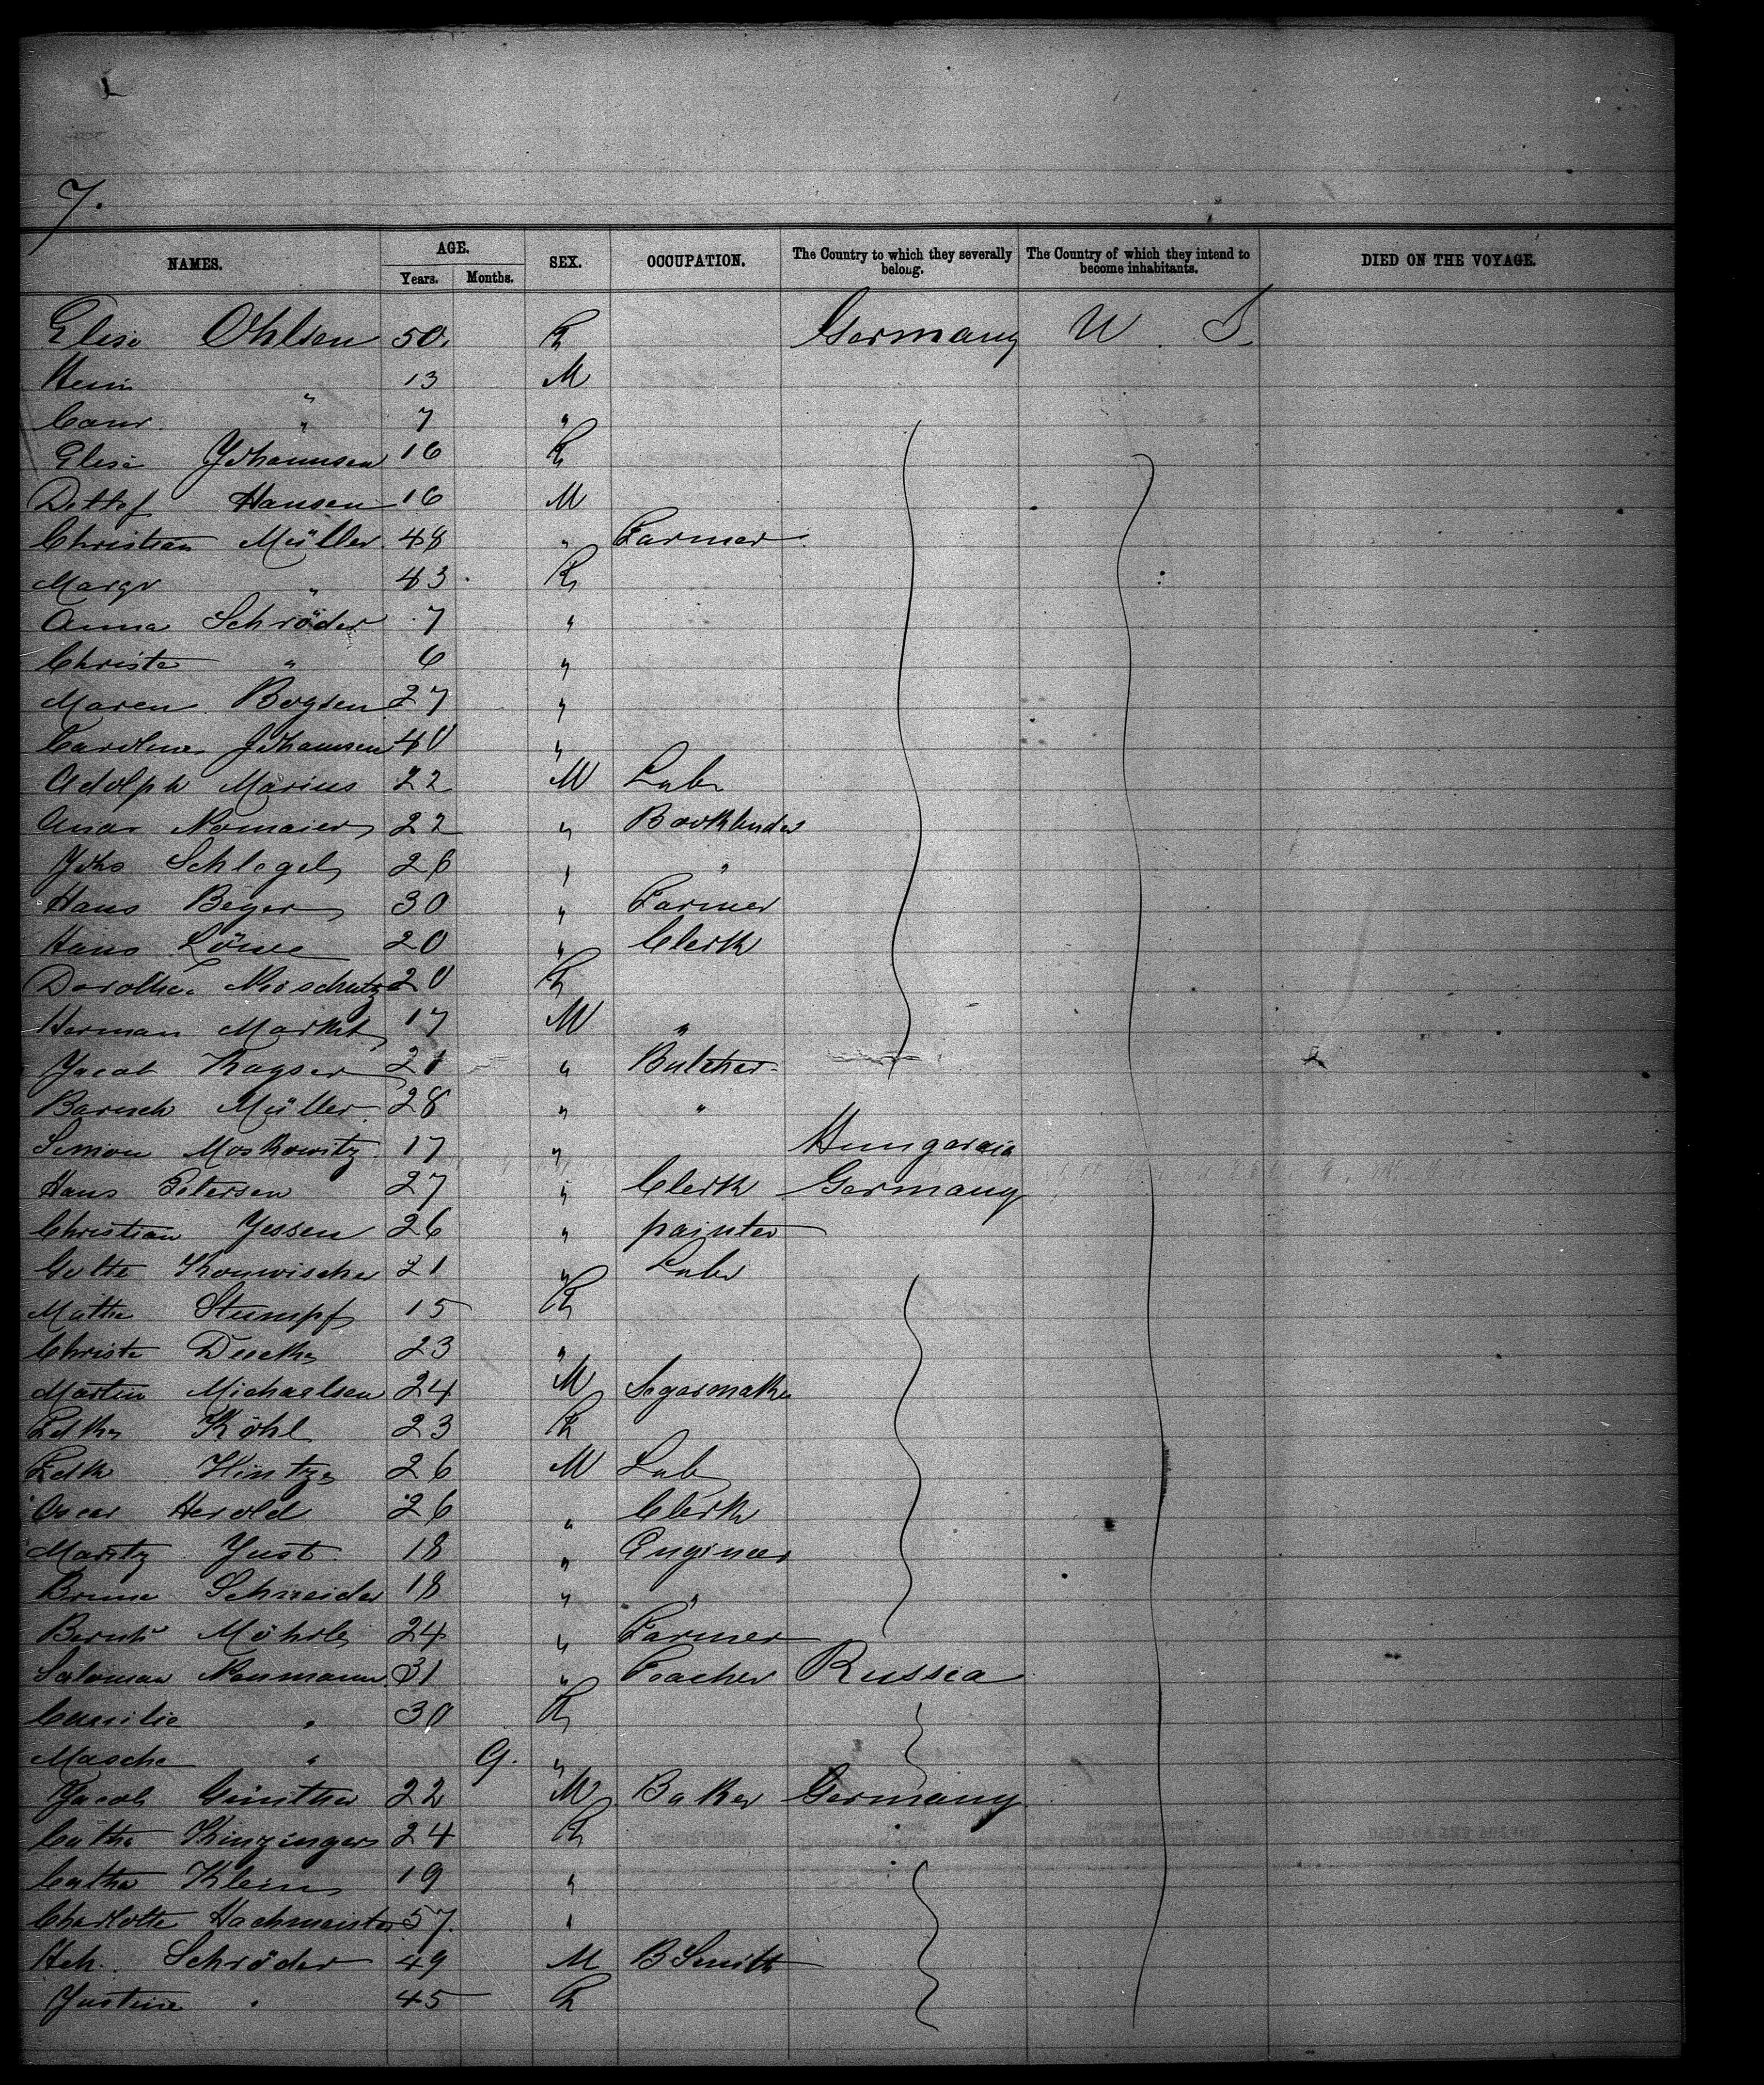 7.
NAMES. AGE. Years. Months. SEX. OCCUPATION. The Country to which they severally belong. The Country of which they intend to become inhabitants. DIED ON THE VOYAGE.
Elise Ohlsen 50. F Germany U. S.
Hein " 13 M
" 7 "
Elise Johannsen 16 F
Detlef Hansen 16 M
Christian Müller 48 " Farmer
Margr " 43 F
Anna Schröder 7 "
Christe " 6 "
Maren Boysen 27 "
Caroline Johannsen 40 "
Adolph Marius 22 M Labr
22 " Bookbinder
Johs Schlegel 26 " "
Hans Beyer 30 " Farmer
Hans Löwe 20 " Clerk
Dorothea 20 F
Herman Markt 17 M "
Jacob Kayser 21 " Butcher
Barusch Müller 28 " "
Simon Moskowitz 17 " Hungaria
Hans Petersen 27 " Clerk Germany
Christian Jessen 26 " painter
21 " Labr
Mathe Stumpf 15 F
Christe 23 "
Martin Michaelsen 24 M Segarmaker
Köhl 23 F
Hintze 26 M Lab
Oscar Herold 26 " Clerk
Moritz Just 18 " Engineer
Bruno Schneider 18 " "
Bernh Möhrle 24 " Farmer
Saloman Neumann 31 " Teacher Russia
Caecilie " 30 F
Masche " 9. "
Jacob Günther 22 M Baker Germany
Catha Kinzinger 24 F
Catha Klein 19 "
Charlotte Hachmeister 57. "
Hch. Schröder 49 M BSmith
Justine " 45 F